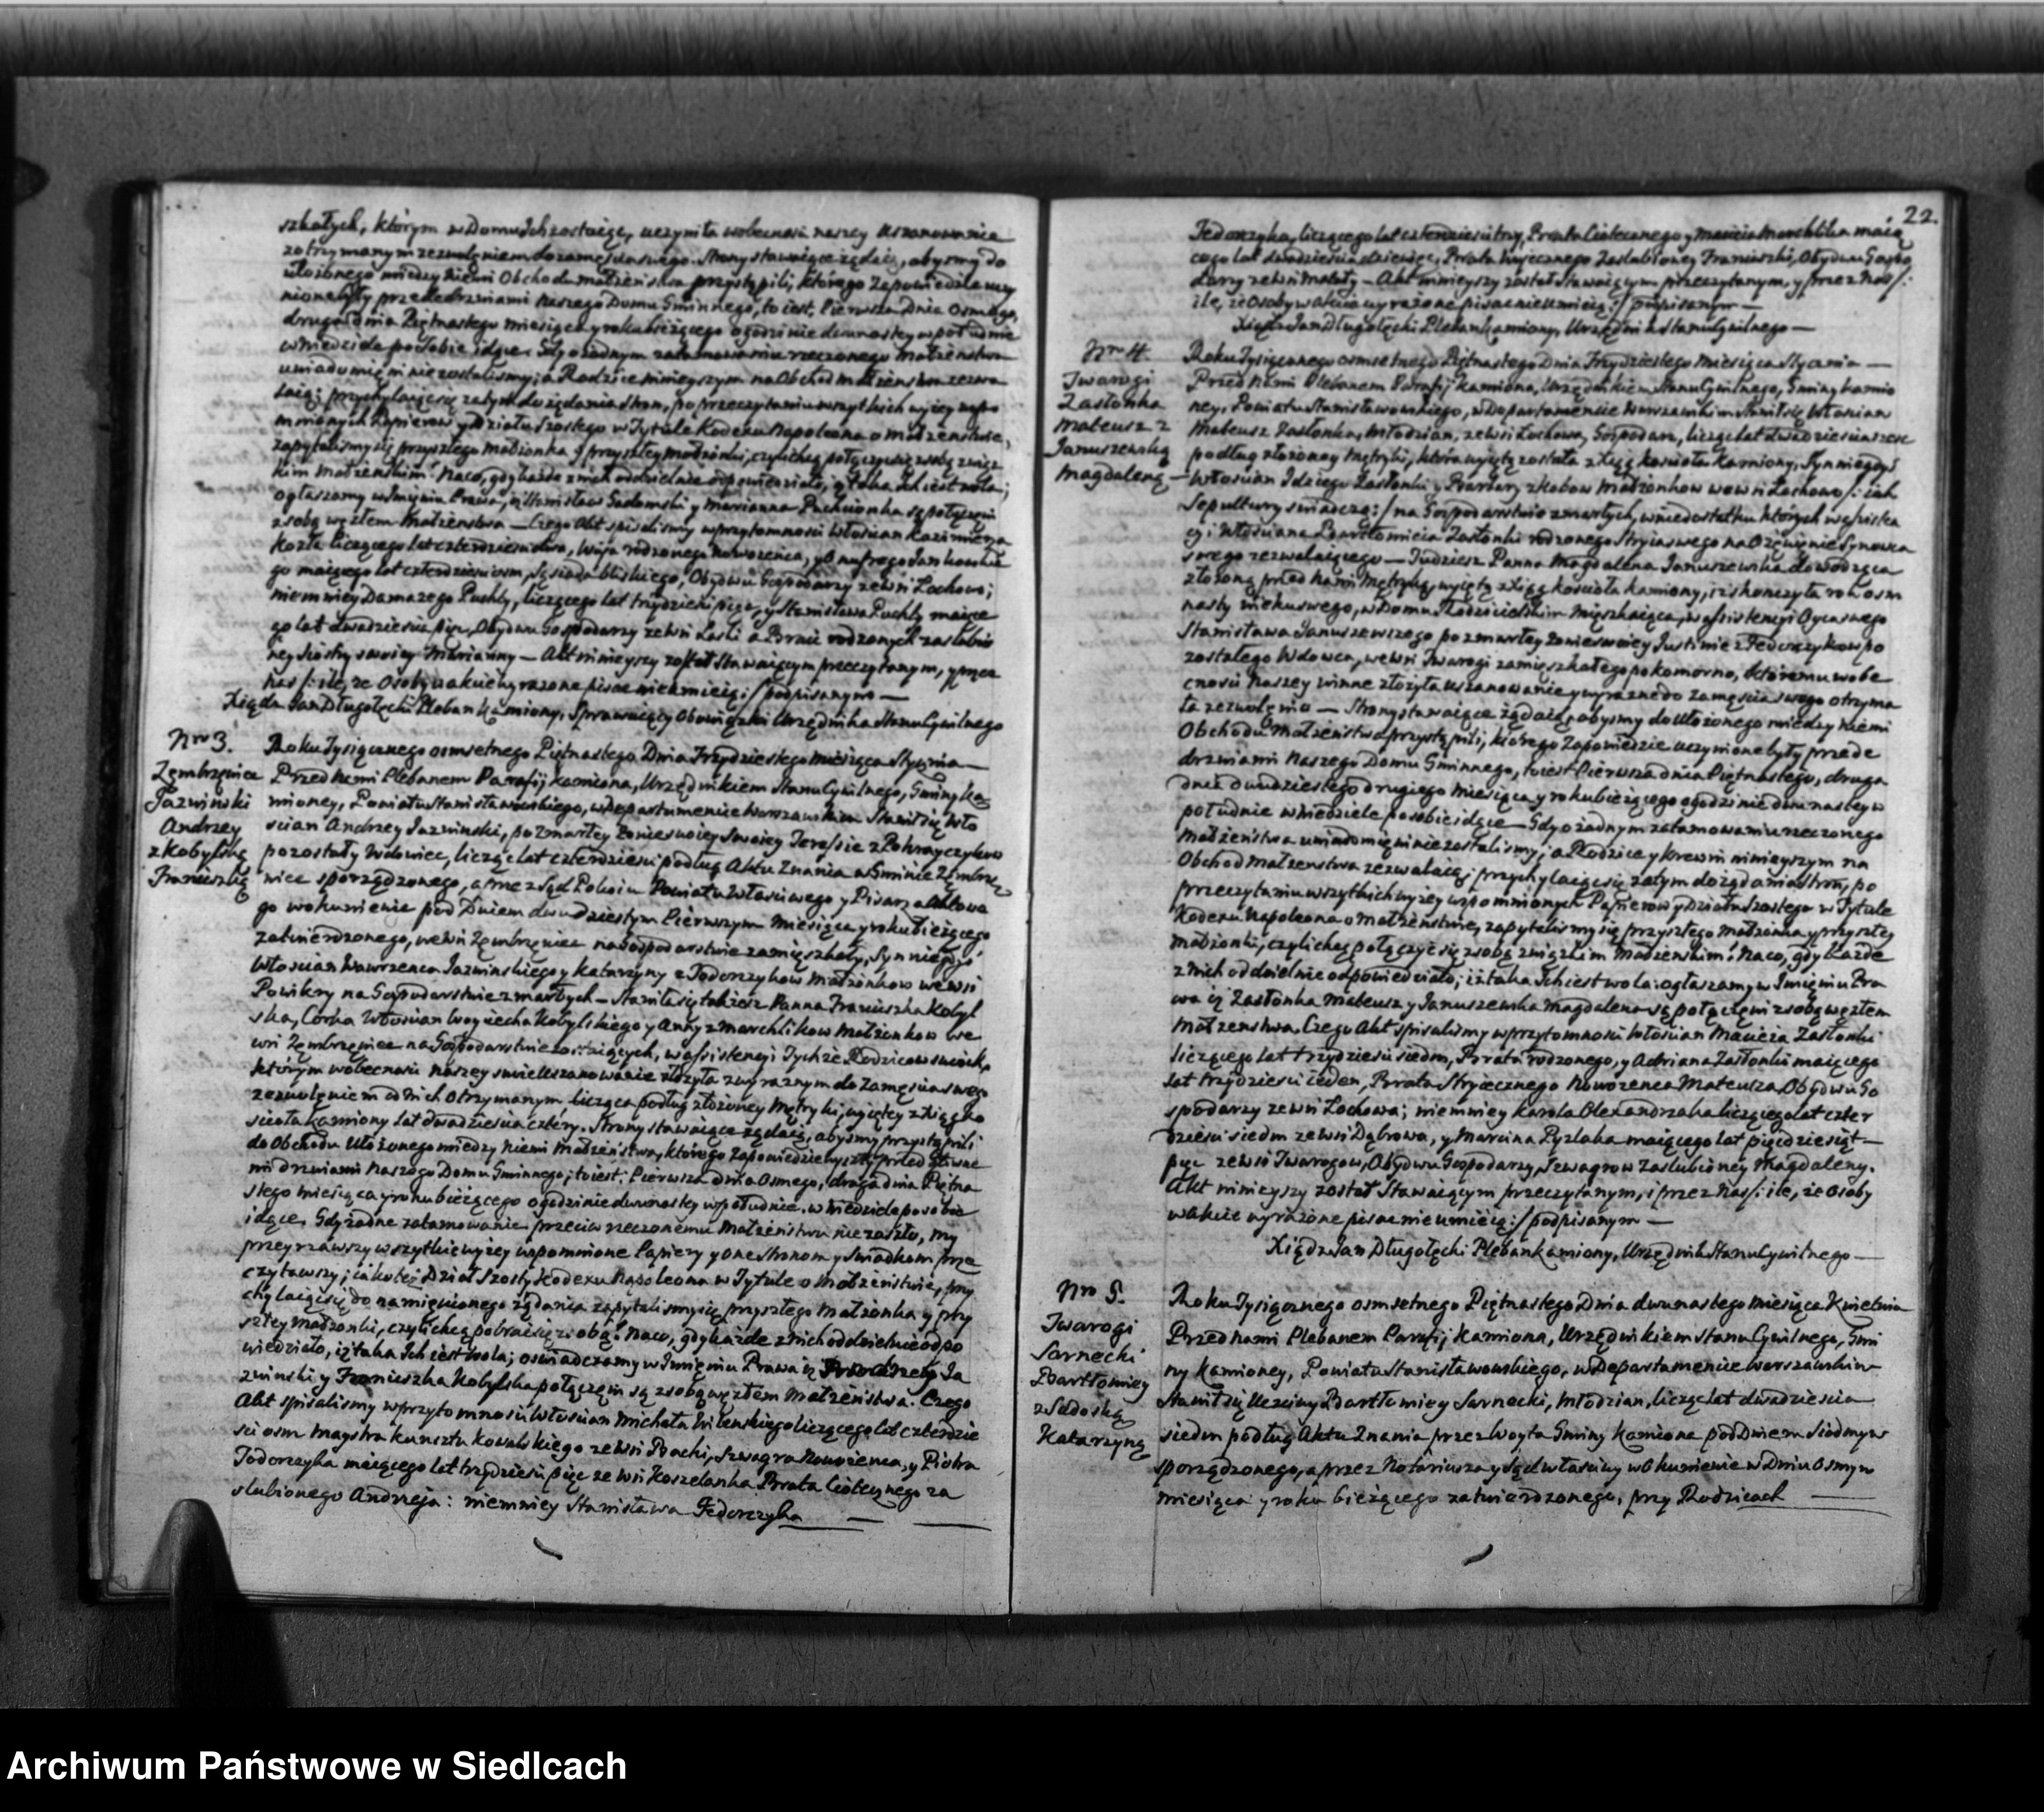 szkałych, którym w Domu Ich zostaiąc, uczyniła wobecności naszey uszanowanie
zotrzymanym zezwoleniem do zamęscia swego. Strony stawaiące żądaią, abysmy do
ułożonego miedzy niemi Obchodu małżeństwa przystąpili, którego Zapowiedzie uczy
nione były przededrzwiami naszego Domu Gminnego, to iest, Pierwsza Dnia Osmego,
druga Dnia Piętnastego miesiąca y roku bieżącego o godzinie dwunastey w południe
w Niedziele po sobie idące. Gdy o żadnym zatamowaniu rzeczonego Małżeństwa
uwiadomieni nie zostalismy; a Rodzice ninieyszym na Obchod Małżeństwa zezwa
laią; przychylaiąc się zatym do żądania stron, po przeczytaniu wszytkich wyżey wspo
mnionych Papierow y Działu Szostego w Tytule Kodexu Napoleona o Małżeństwie,
zapytalismy się przyszłego Małżonka y przyszłey Małżonki, czyli chcą połączyć się z sobą związ
kiem Małżenskim? Na co, gdy każde z nich oddzielnie odpowiedziało, iż taka Ich iest wola;
ogłaszamy w Imieniu Prawa, iż Stanisław Sadomski y Marianna Puchcionka są połączeni
z sobą węzłem Małżeństwa — Czego Akt spisalismy w przytomności Włościan Kazimierza
Kozła liczącego lat czterdzieści dwa, Wuja rodzonego Nowożeńca, y Onufrego Jankowskie
go maiącego lat czterdzieści osm, Sąsiada bliskiego, Obydwu Gospodarzy ze wsi Łochowo;
niemniey Damazego Puchty, liczącego lat trzydzieści pięć, y Stanisława Puchty maiące
go lat dwadzieścia pięć, Obydwu Gospodarzy ze wsi Laski a Braci rodzonych zaslubio
ney Siostry swoiey Marianny — Akt ninieyszy został Stawaiącym przeczytanym, y przez
nas /: ile, że Osoby w akcie wyrażone pisac nie umieią :/ podpisanym —
Xiądz Jan Długołęcki Pleban Kamiony, Sprawuiący Obowiązki Urzędnika Stanu Cywilnego
Nro 3.
Zęmbrzęnice
Jaźwiński
Andrzey
z Kobylską
Franciszką
Roku Tysiącznego osmsetnego Piętnastego Dnia Trzydziestego miesiąca Stycznia —
Przed Nami Plebanem Parafij Kamiona, Urzędnikiem Stanu Cywilnego, Gminy Ka
mioney, Powiatu Stanisławowskiego, w Departamencie Warszawskim Stawił się Wło
scian Andrzey Jazwinski, po zmarłey żonie swoiey Teressie z Pokrzywczykow
pozostały Wdowiec, liczący lat czterdzieści podług Aktu Znania w Gminie Zęmbrzę
nice sporządzonego, a przez Sąd Pokoiu Powiatu Własciwego y Pisarza Aktowe
go w Okuniewie pod Dniem dwudziestym Pierwszym miesiąca y roku bieżącego
zatwierdzonego, we wsi Zęmbrzęnice na Gospodarstwie zamięszkały, Syn niegdyś
Włoscian Wawrzenca Jazwinskiego y Katarzyny z Todorczykow Małżonkow we wsi
Powikry na Gospodarstwie zmarłych — Stawiła się także Panna Franciszka Kobyl
ska, Corka Włoscian Woyciecha Kobylskiego y Anny z Marchlikow Małżonkow we
wsi Zęmbrzęnice na Gospodarstwie zostaiących, w assistencyi Tychże Rodzicow swoich,
którym wobecności naszey swoie Uszanowanie złożyła z wyraznym do Zamęscia swego
zezwoleniem od Nich otrzymanym, licząca podług złożoney Metryki, wyiętey z Xiąg Ko
scioła Kamiony lat dwadzieścia cztery. Strony stawaiące żądaią, abysmy przystąpili
do Obchodu Ułożonego miedzy Niemi Małżeństwa, którego Zapowiedzie wyszły przed głowne
mi drzwiami Naszego Domu Gminnego; to iest: Pierwsza dnia Osmego, druga dnia Piętna
stego miesiąca y roku bieżącego o godzinie dwunastey w południe w Niedziele po sobie
idące. Gdy żadne zatamowanie przeciw rzeczonemu Małżeństwu nie zaszło, my
przeyrzawszy wszytkie wyżey wspomnione Papiery y one stronom y Swiadkom prze
czytawszy; iako też Dział Szosty Kodexu Napoleona w Tytule o Małżeństwie, przy
chylaiąc się do namienionego żądania zapytalismy się przyszłego Małżonka y przy
szłey Małżonki, czyli chcą pobrać się z sobą? Na co, gdy każde z Nich oddzielnie odpo
wiedziało, iż taka Ich iest Wola; oswiadczamy w Imieniu Prawa iż Andrzey Ja
zwinski y Franciszka Kobylska połączeni są z sobą węzłem Małżeństwa. Czego
Akt spisalismy w przytomności Włoscian Michała Wilenskiego liczącego lat czterdzie
sci osm Maystra kunsztu kowalskiego ze wsi Baczki, Szwagra Nowożenca, y Piotra
Todorczyka maiącego lat trzydzieści pięć ze wsi Koszelanka Brata Ciotecznego za
slubionego Andrzeja: niemniey Stanisława Fedorczyka
22.
Fedorczyka, liczącego lat czterdzieści trzy, Brata Ciotecznego y Macieia Marchlika maią
cego lat dwadzieścia dziewięć, Brata Wuiecznego Zaslubioney Franciszki, Obydwu Gospo
darzy ze wsi Matały — Akt ninieyszy został Stawaiącym przeczytanym, y przez Nas /:
ile, że Osoby w akcie wyrażone pisac nie umieią :/ podpisanym —
Xiądz Jan Długołęcki Pleban Kamiony, Urzędnik Stanu Cywilnego —
Nro 4.
Twarogi
Zasłonka
Mateusz z
Januszewską
Magdaleną —
Roku Tysiącznego osmsetnego Piętnastego Dnia Trzydziestego miesiąca Stycznia —
Przed Nami Plebanem Parafij Kamiona, Urzędnikiem Stanu Cywilnego, Gminy Kamio
ney, Powiatu Stanisławowskiego, w Departamencie Warszawskim Stawił się Włoscian
Mateusz Zasłonka, Młodzian, ze wsi Łochowa, Gospodarz, liczący lat dwadzieścia szesc
podług złożoney Metryki, która wyięta została z Xiąg koscioła Kamiony, Syn niegdyś
Włoscian Idziego Zasłonki y Barbary z Kobow Małżonkow we wsi Łochowo /: iak
Sepultury swiadczą :/ na Gospodarstwie zmarłych, w niedostatku których w assisten
cyi Włosciana Bartłomieia Zasłonki rodzonego Stryia swego na Ożęnienie Synowca
swego zezwalaiącego — Tudziesz Panna Magdalena Januszewska dowodząca
złożoną przed Nami Metryką, wyiętą z Xiąg koscioła kamiony, iż skonczyła rok osm
nasty wieku swego, w Domu Rodzicielskim mieszkaiąca, w assistencyi Oyca swego
Stanisława Januszewszego po zmarłey żonie swoiey Justinie z Fedorczykow po
zostałego Wdowca, we wsi Twarogi zamięszkałego pokomorno, któremu wobe
cnosci Naszey winne złożyła uszanowanie y wyrazne do Zamęscia swego otrzyma
ła zezwolenie — Strony stawaiące żądaią abysmy do ułożonego miedzy niemi
Obchodu Małżeństwa przystąpili, którego Zapowiedzie uczynione były przede
drzwiami Naszego Domu Gminnego, to iest Pierwsza dnia Piętnastego, druga
dnia dwudziestego drugiego miesiąca y roku bieżącego o godzinie dwunastey w
południe w Niedziele, po sobie idące — Gdy o żadnym zatamowaniu rzeczonego
Małżeństwa uwiadomieni nie zostalismy; a Rodzice y krewni ninieyszym na
Obchod Małżenstwa zezwalaią; przychylaiąc się zatym do żądania stron, po
przeczytaniu wszytkich wyżey wspomnionych Papierow y Działu Szostego w Tytule
Kodexu Napoleona o Małżeństwie, zapytalismy się przyszłego Małżonka y przyszłey
Małżonki, czyli chcą połączyć się z sobą związkiem Małżenskim? Na co, gdy każde
z Nich oddzielnie odpowiedziało; iż taka Ich iest wola: ogłaszamy w Imieniu Pra
wa iż Zasłonka Mateusz y Januszewska Magdalena są połączeni z sobą węzłem
Małżenstwa. Czego Akt spisalismy w przytomnosci Włoscian Macieia Zasłonki
liczącego lat trzydzieści siedm, Brata rodzonego, y Adriana Zasłonki maiącego
lat trzydzieści ieden, Brata Stryiecznego Nowożenca Mateusza, Obydwu Go
spodarzy ze wsi Łochowa; niemniey Karola Olexandrzaka liczącego lat czter
dziesci siedm ze wsi Dąbrowa, y Marcina Pyzlaka maiącego lat pięćdziesiąt —
pięc ze wsi Twarogow, Obydwu Gospodarzy, Szwagrow Zaslubioney Magdaleny.
Akt ninieyszy został Stawaiącym przeczytanym, i przez Nas /: ile, że Osoby
w akcie wyrażone pisac nie umieią :/ podpisanym —
Xiądz Jan Długołęcki Pleban Kamiony, Urzędnik Stanu Cywilnego —
Nro 5.
Twarogi
Sarnecki
Bartłomiey
z Sadoską
Katarzyną
Roku Tysiącznego osmsetnego Piętnastego Dnia dwunastego miesiąca Kwietnia
Przed nami Plebanem Parafij Kamiona, Urzędnikiem Stanu Cywilnego, Gmi
ny Kamioney, Powiatu Stanisławowskiego, w Departamencie Warszawskim
Stawił się Uczciwy Bartłomiey Sarnecki, Młodzian, liczący lat dwadziescia
siedm podług Aktu Znania przez Woyta Gminy Kamiona pod Dniem Siodmym
sporządzonego, a przez Notariusza y Sąd właściwy w Okuniewie w Dniu Osmym
miesiąca y roku bieżącego zatwierdzonego, przy Rodzicach —
Archiwum Państwowe w Siedlcach